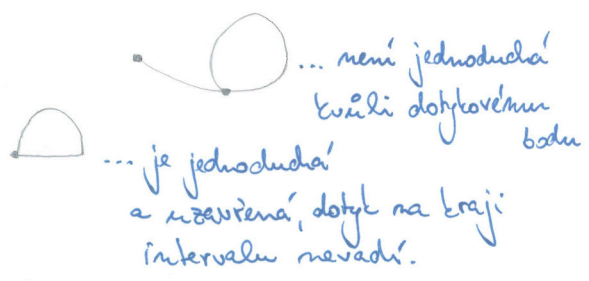 ... není jednoduchá
kvůli dotykovému
bodu
... je jednoduchá
a uzavřená, dotyk na kraji
intervalu nevadí.